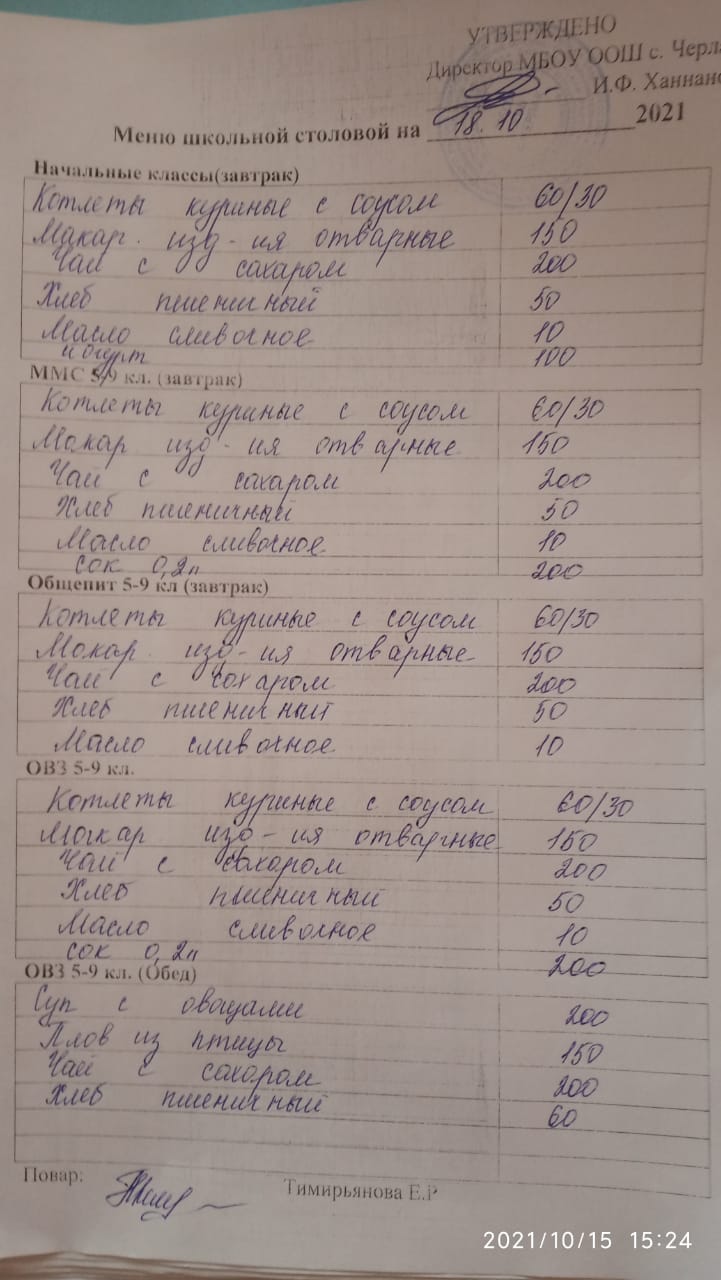 УТВЕРЖДЕНО
Директор МБОУ ООШ с. Черла
И.Ф. Ханнано
Меню школьной столовой на 18.10 2021
Начальные классы(завтрак)
Котлеты куриные с соусом 60/30
Макар. изд-ия отварные 150
Чай с сахаром 200
Хлеб пшеничный 50
Масло сливочное 10
йогурт 100
ММС 5/9 кл. (завтрак)
Котлеты куриные с соусом 60/30
Макар изд-ия отварные 150
Чай с сахаром 200
Хлеб пшеничный 50
Масло сливочное 10
сок 0,2л 200
Общепит 5-9 кл (завтрак)
Котлеты куриные с соусом 60/30
Макар. изд-ия отварные 150
Чай с сахаром 200
Хлеб пшеничный 50
Масло сливочное 10
ОВЗ 5-9 кл.
Котлеты куриные с соусом 60/30
Макар изд-ия отварные 150
Чай с сахаром 200
Хлеб пшеничный 50
Масло сливочное 10
сок 0,2л 200
ОВЗ 5-9 кл. (Обед)
Суп с овощами 200
Плов из птицы 150
Чай с сахаром 200
Хлеб пшеничный 60
Повар: Тимирьянова Е.Р
2021/10/15 15:24